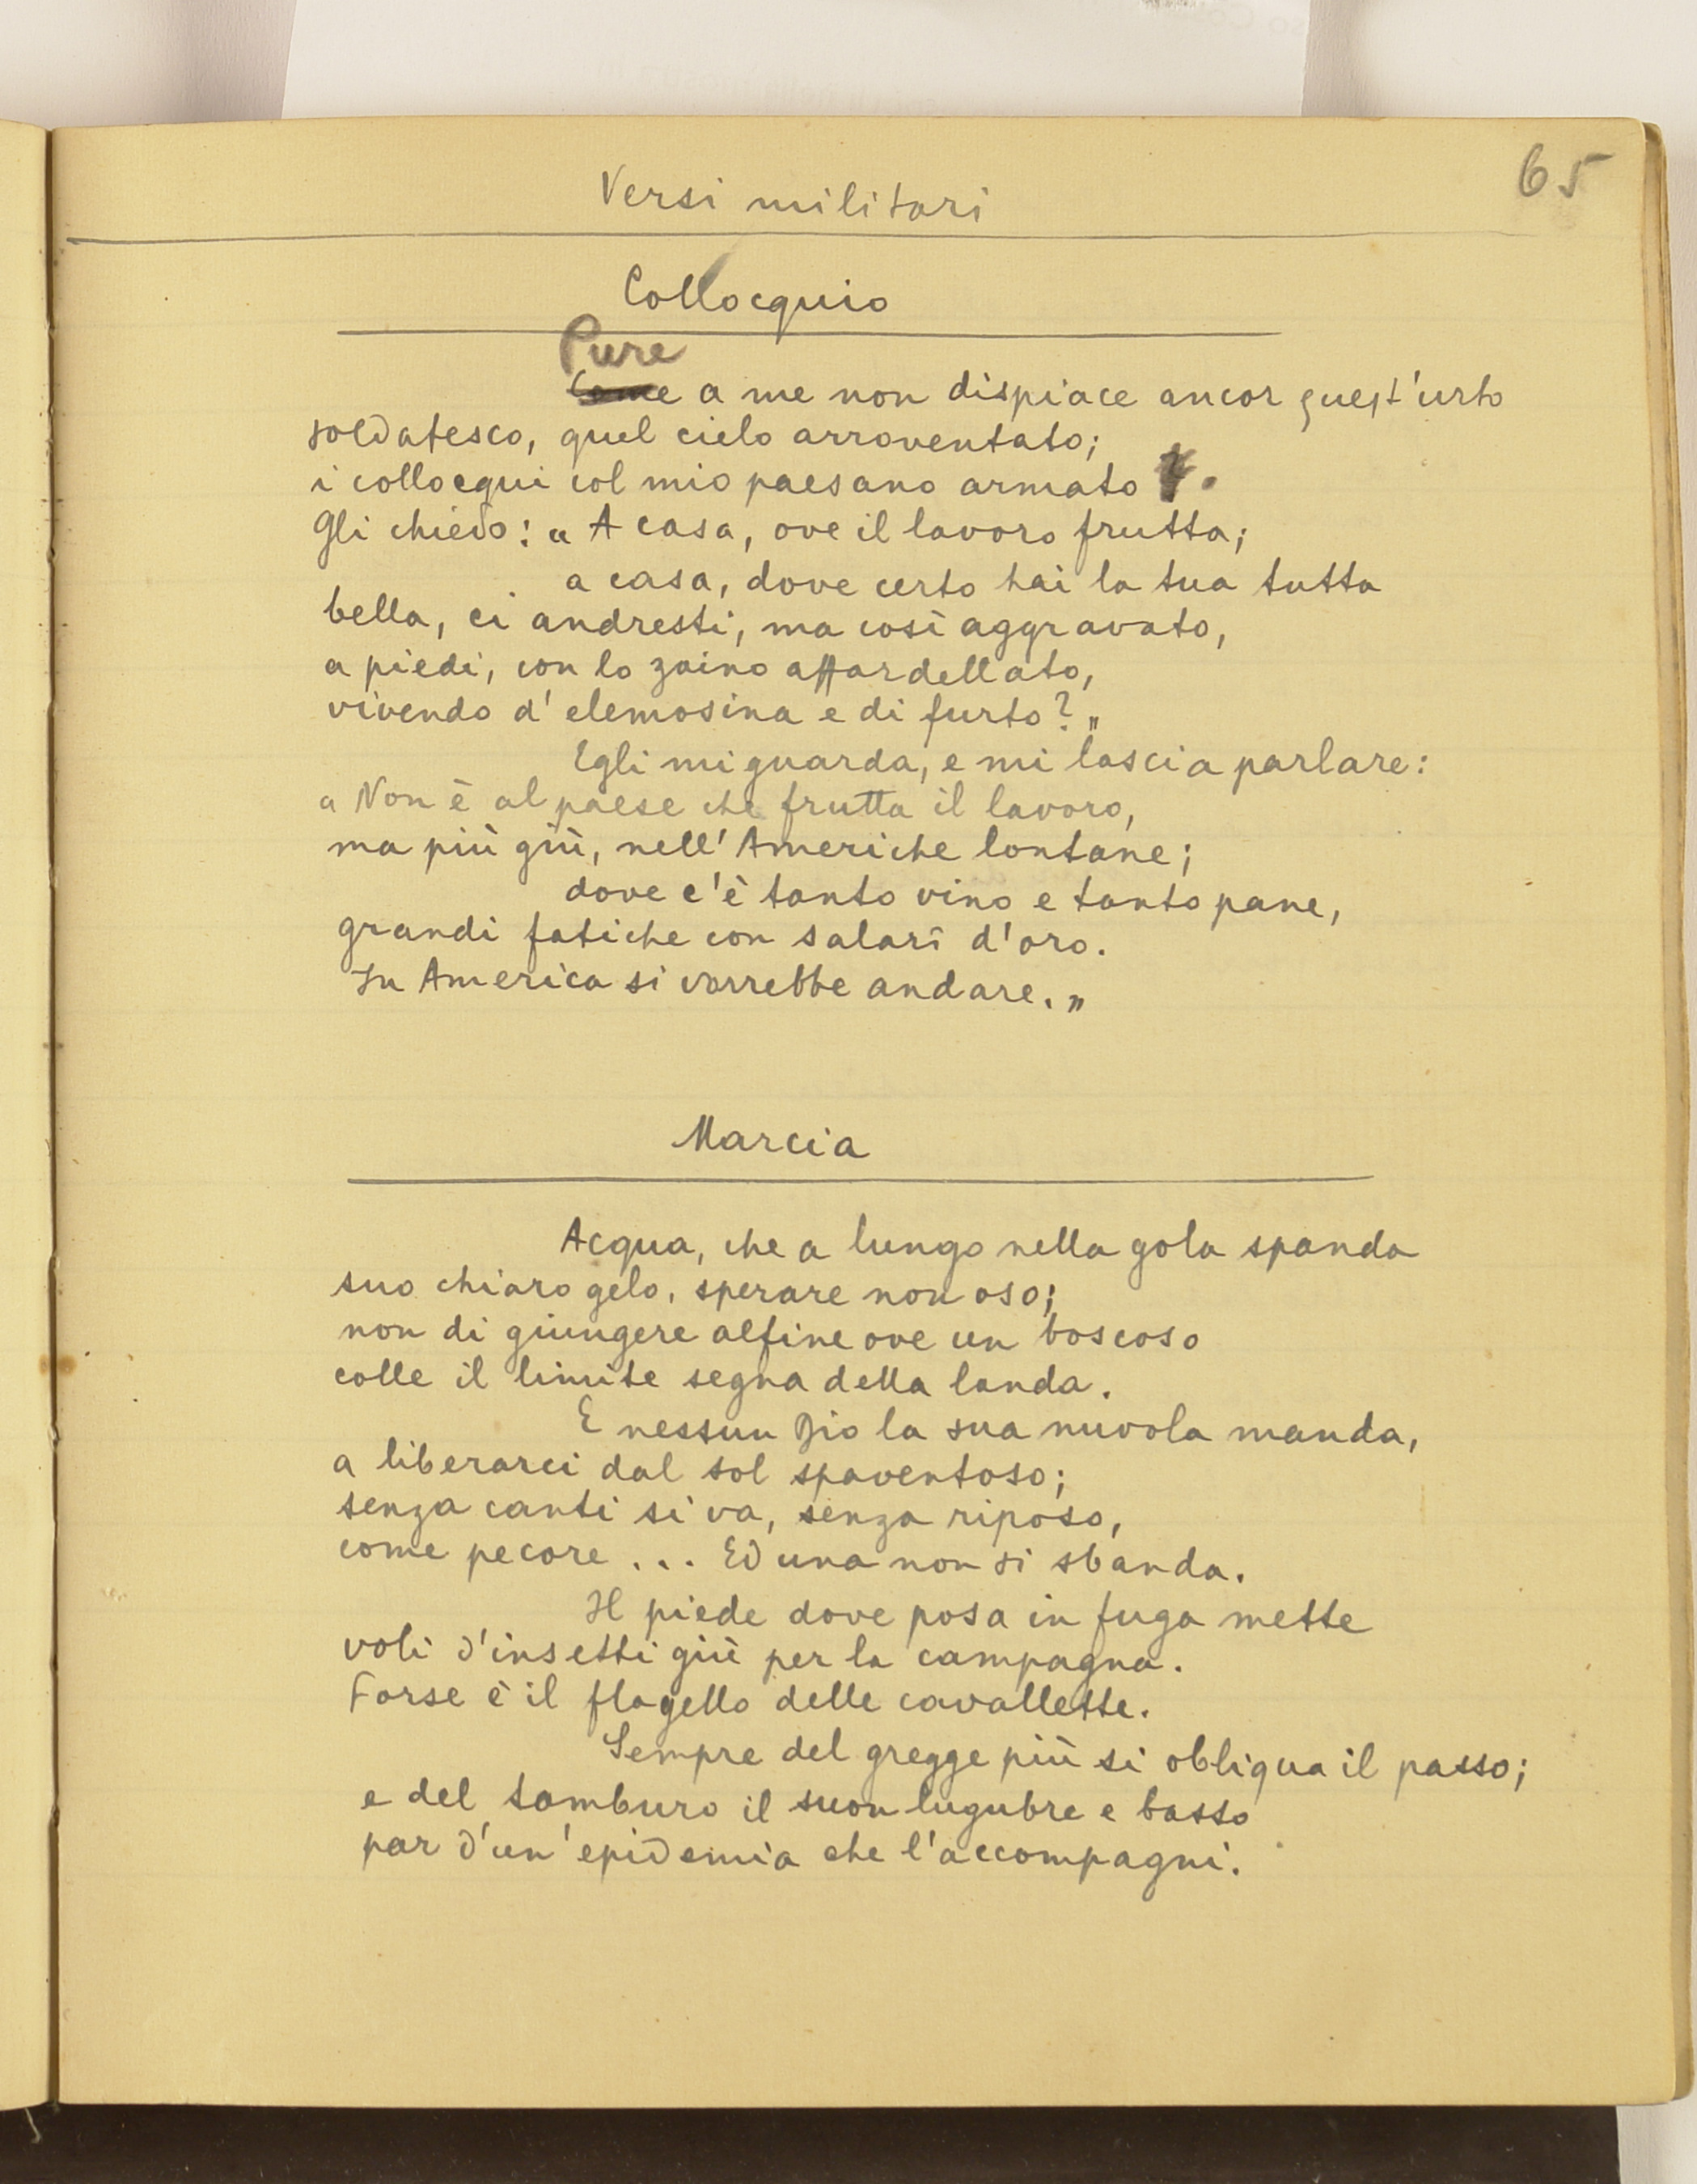 65
Versi militari
Collocquio
Pure
Come a me non dispiace ancor quest'urto
soldatesco, quel cielo arroventato;
i collocqui col mio paesano armato.
Gli chiedo: « A casa, ove il lavoro frutta;
a casa, dove certo hai la tua tutta
bella, ci andresti, ma così aggravato,
a piedi, con lo zaino affardellato,
vivendo d'elemosina e di furto? „
Egli mi guarda, e mi lascia parlare:
« Non è al paese che frutta il lavoro,
ma più giù, nell'Americhe lontane;
dove c'è tanto vino e tanto pane,
grandi fatiche con salarî d'oro.
In America si vorrebbe andare. „
Marcia
Acqua, che a lungo nella gola spanda
suo chiaro gelo, sperare non oso;
non di giungere alfine ove un boscoso
colle il limite segna della landa.
E nessun Dio la sua nuvola manda,
a liberarci dal sol spaventoso;
senza canti si va, senza riposo,
come pecore ... Ed una non si sbanda.
Il piede dove posa in fuga mette
voli d'insetti giù per la campagna.
Forse è il flagello delle cavallette.
Sempre del gregge più si obliqua il passo;
e del tamburo il suon lugubre e basso
par d'un'epidemia che l'accompagni.